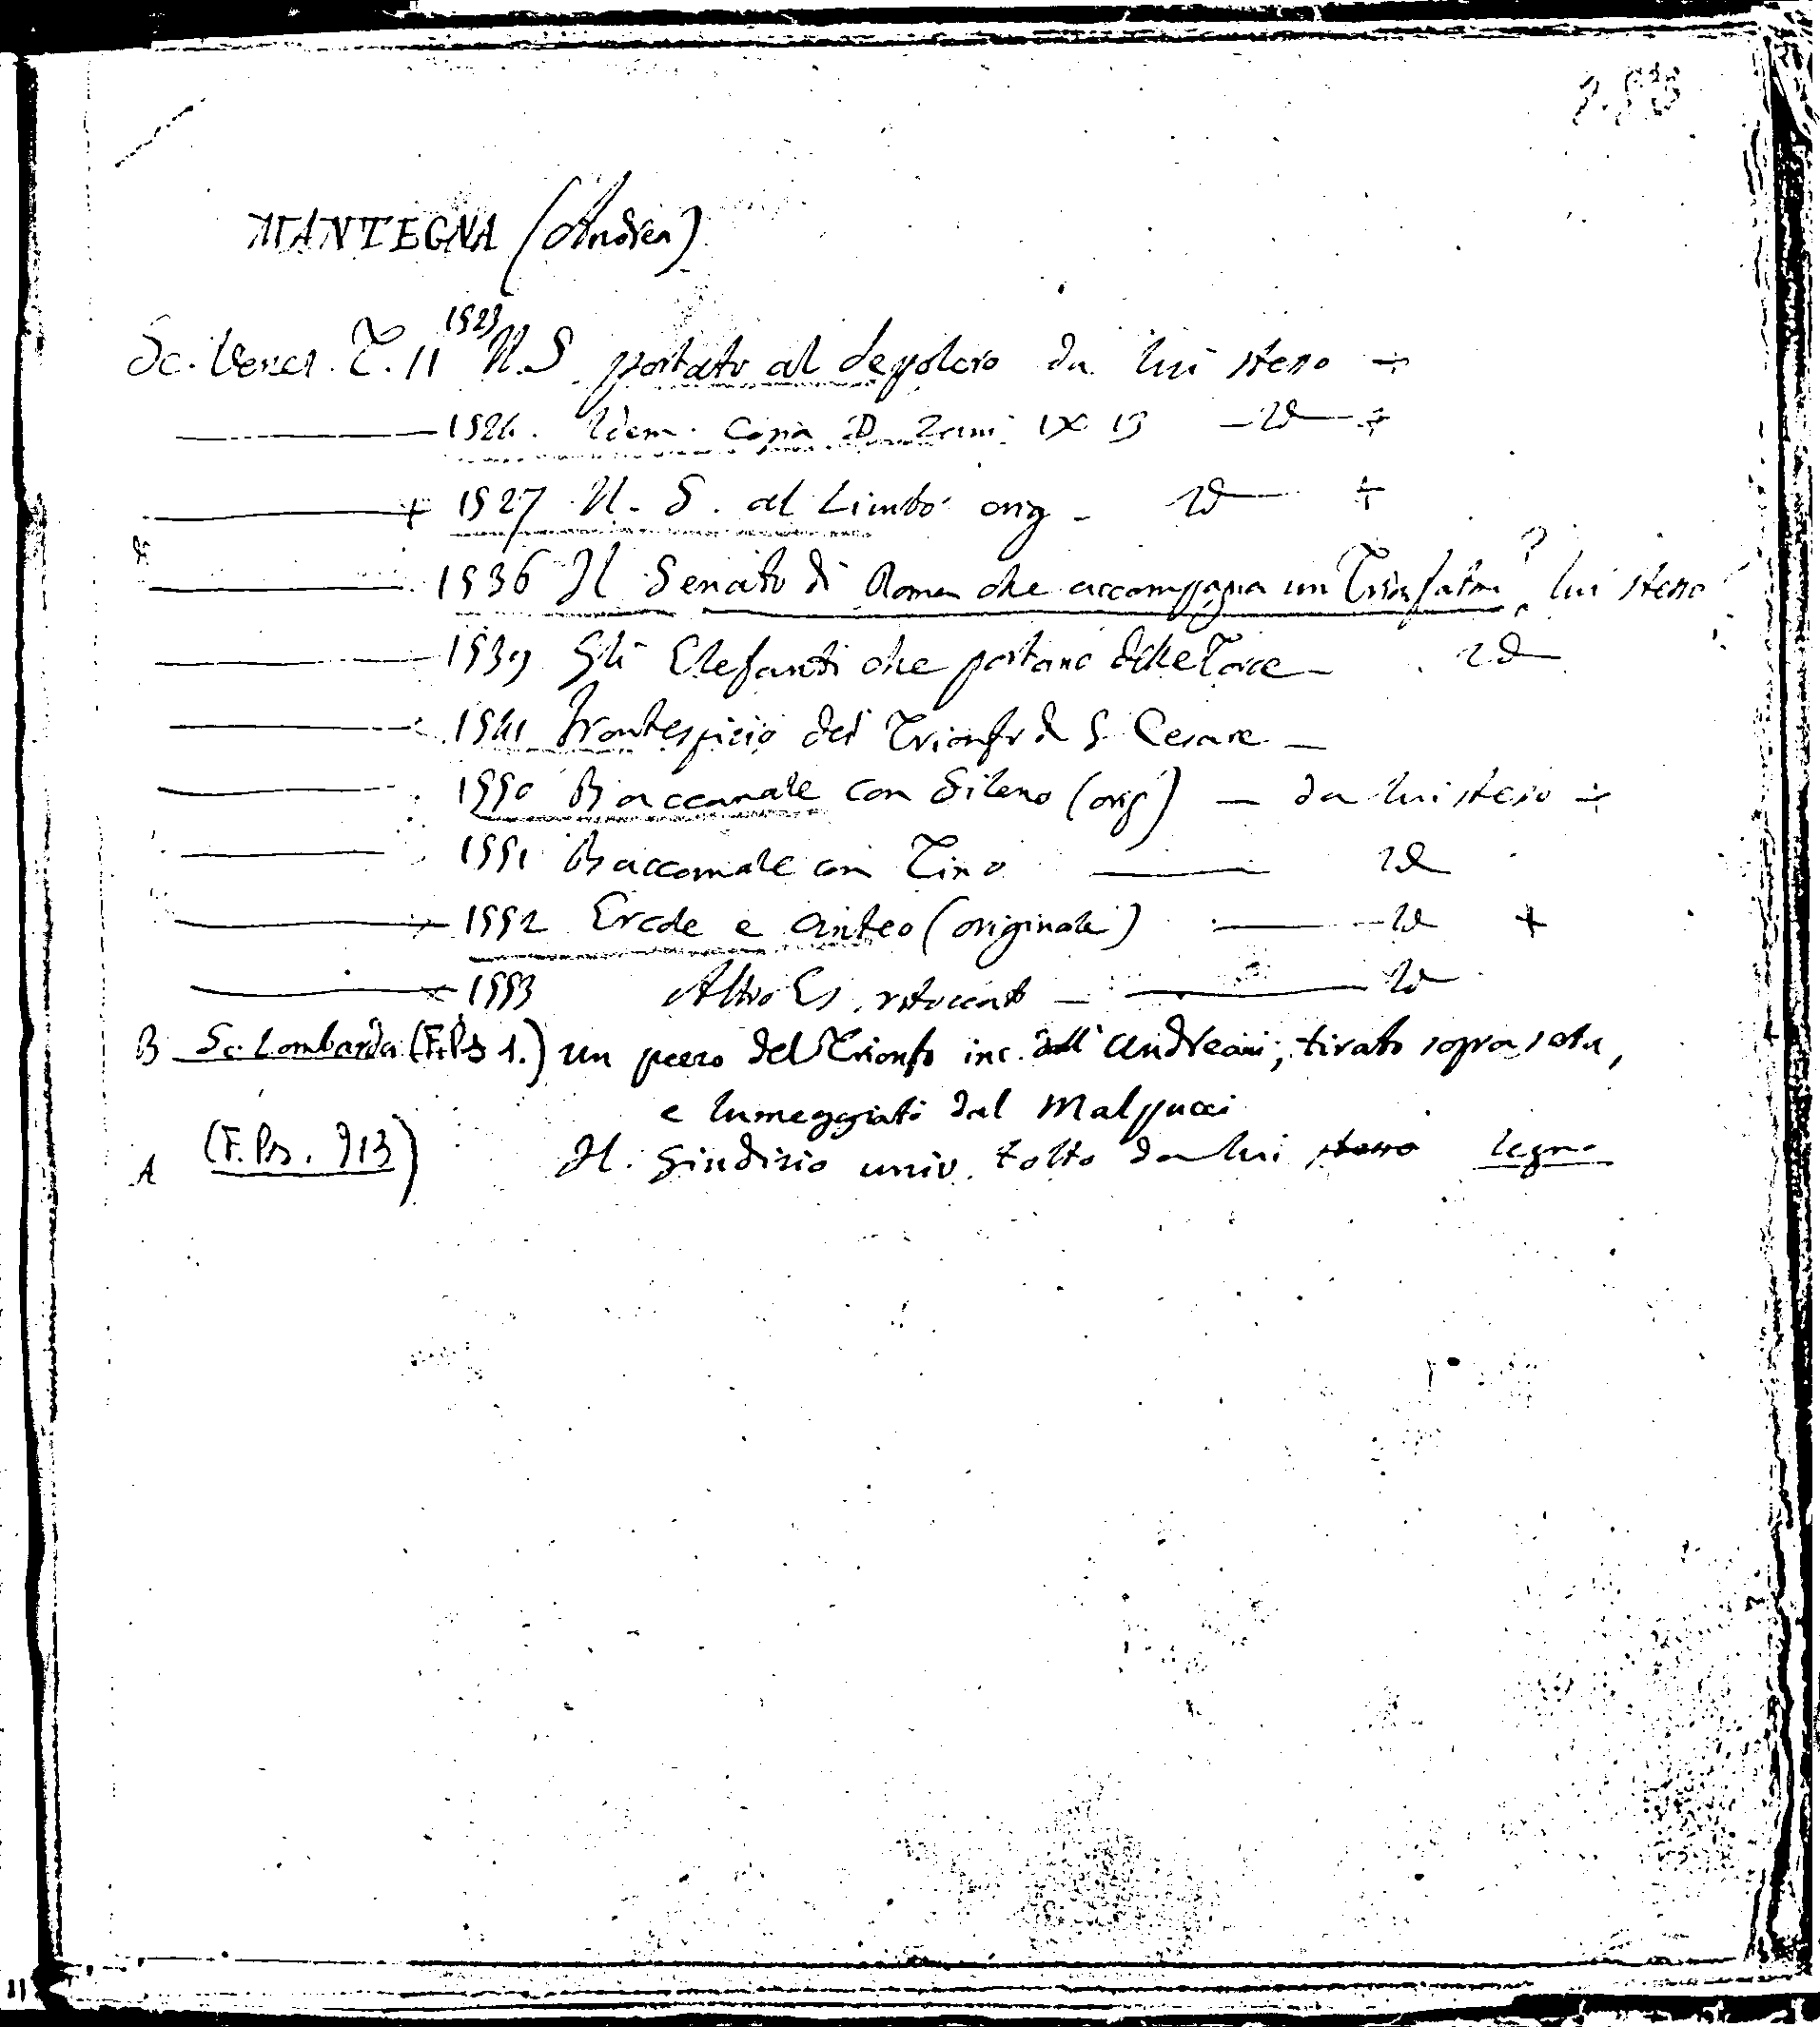 MANTEGNA (Andrea)
Sc. Venez. T. II 1523 N.S. portato al Sepolcro da lui stesso +
1524. Idem. Copia D. Zani IX 13 - Id - +
+ 1527 N. S. al Limbo orig - Id +
1536 Il Senato di Roma che accompagna un Trionfator? lui stesso
1539 Gli Elefanti che portano delle Torce - Id
1541 Frontespicio del Trionfo di G. Cesare -
1550 Baccanale con Sileno (orig) - da lui stesso +
1551 Baccanale con Tino - Id
1552 Ercole e Anteo (originale) - Id +
1553 Altro Es. ritoccato - Id
B Sc. Lombarda (F. Ps 1.) un pezzo del Trionfo inc. dall' Andreani, tirato sopra seta,
e lumeggiato dal Malpucci
A (F. Ps. 913) Il Giudizio univ. tolto da lui stesso legno